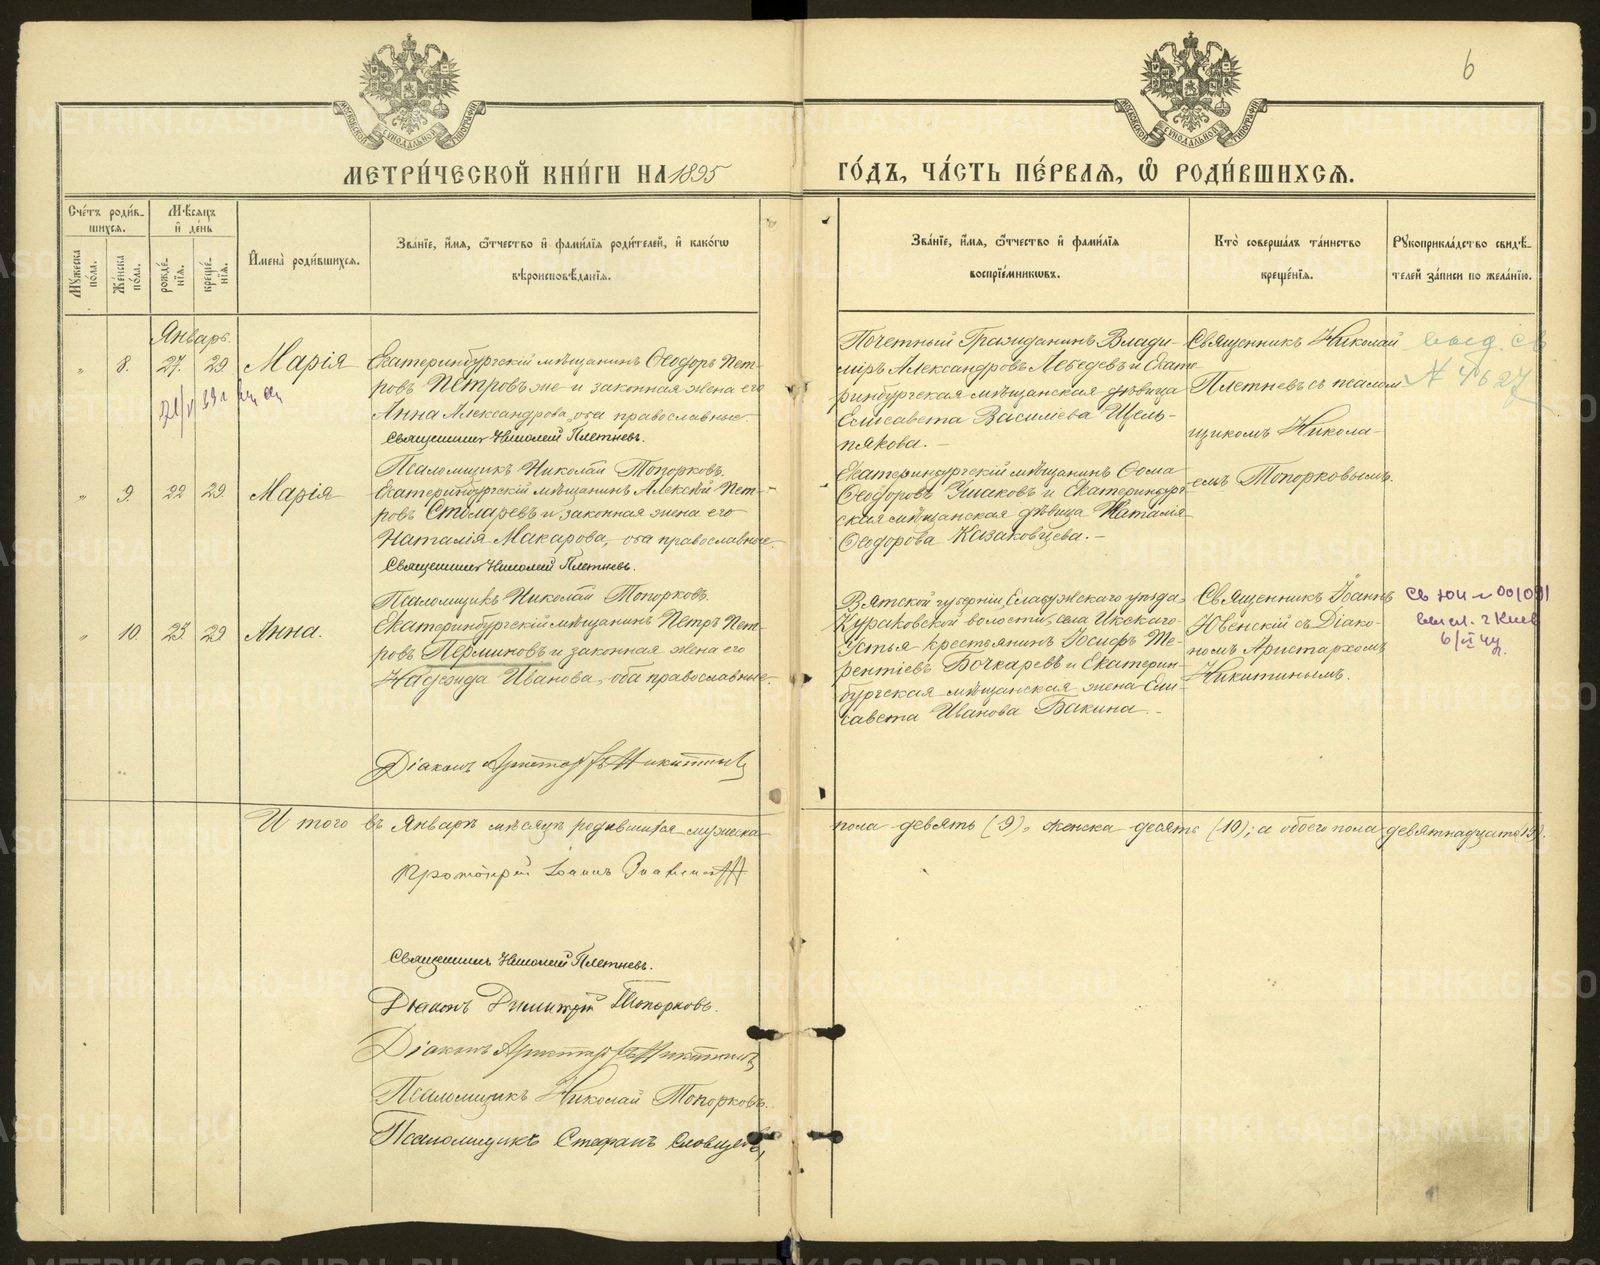 6
МОСКОВСКОЙ СѴНОДАЛЬНОЙ ТИПОГРАФІИ
МОСКОВСКОЙ СѴНОДАЛЬНОЙ ТИПОГРАФІИ
МЕТРИ́ЧЕСКОЙ КНИ́ГИ НА 1895 ГО́ДЪ, ЧА́СТЬ ПЕ́РВАѦ, Ѡ҆ РОДИ́ВШИХСѦ.
Сче́тъ роди́в-
шихсѧ.
Мꙋ́жеска по́ла.
Же́нска по́ла.
Мѣ́сѧцъ
и҆ де́нь
рожде́нїѧ.
креще́нїѧ.
И҆мена̀ роди́вшихсѧ.
Зва́нїе, и҆́мѧ, ѻ҆́тчество и҆ фами́лїѧ роди́телей, и҆ како́гѡ
вѣроисповѣ́данїѧ.
Зва́нїе, и҆́мѧ, ѻ҆́тчество и҆ фами́лїѧ
воспрїе́мникѡвъ.
Кто̀ соверша́лъ та́инство
креще́нїѧ.
Рꙋкоприкла́дство свидѣ́-
телей за́писи по жела́нїю.
Январь.
„ 8. 27. 29 Марія
Екатеринбургскій мѣщанинъ Ѳеодоръ Пет-
ровъ Петровъ же и законная жена его
Анна Александрова, оба православные.
Священникъ Николай Плетневъ.
Псаломщикъ Николай Топорковъ.
Почетный Гражданинъ Влади-
міръ Александровъ Лебедевъ и Екате-
ринбургская мѣщанская дѣвица
Елисавета Василіева Щель-
пякова. -
Священникъ Николай
Плетневъ съ псалом
щикомъ Никола-
емъ Топорковымъ.
выд. св
№ 4627
„ 9. 22 29. Марія
Екатеринбургскій мѣщанинъ Алексѣй Пет-
ровъ Столаревъ и законная жена его
Наталія Макарова, оба православные.
Священникъ Николай Плетневъ.
Псаломщикъ Николай Топорковъ.
Екатеринбургскій мѣщанинъ Ѳома
Ѳеодоровъ Ушаковъ и Екатеринбург-
ская мѣщанская дѣвица Наталія
Ѳеодорова Казаковцева. -
„ 10. 25 29 Анна.
Екатеринбургскій мѣщанинъ Петръ Пет-
ровъ Перминовъ и законная жена его
Надежда Иванова, оба православные.
Діаконъ Аристархъ Никитинъ
Вятской губерніи, Елабужскаго уѣзда,
Кураковской волости, села Икскаго-
Устья крестьянинъ Іосифъ Те-
рентіевъ Бочкаревъ и Екатерин-
бургская мѣщанская жена Ели-
савета Иванова Бакина. -
Священникъ Іоаннъ
Ювенскій съ Діако-
номъ Аристархомъ
Никитинымъ.
Итого въ Январѣ мѣсяцѣ родившихся мужеска пола девять (9), женска десять (10); а обоего пола девятнадцать (19).
Протоіерей Іоаннъ
Священникъ Николай Плетневъ.
Діаконъ Димитрій Топорковъ.
Діаконъ Аристархъ Никитинъ
Псаломщикъ Николай Топорковъ.
Псаломщикъ Стефанъ Словцовъ,
METRIKI.GASO-URAL.RU